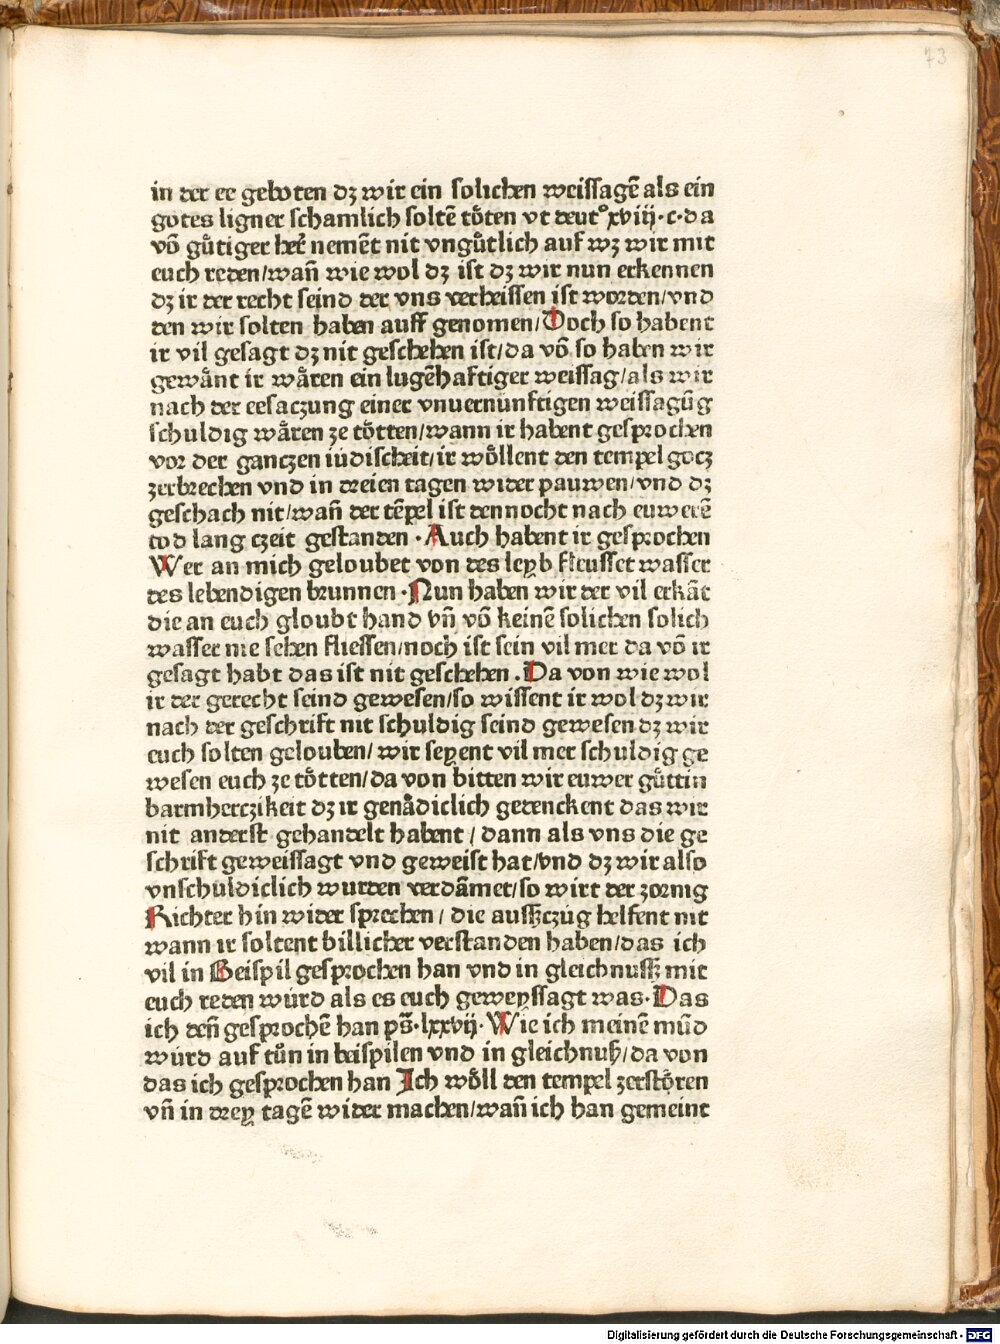 73
in der ee geboten dz wir ein solichen weissagē als ein
gotes ligner schamlich soltē töten vt deut° xviij·c·da
vō gůtiger her̄ nemēt nit vngůtlich auf wz wir mit
euch reden/wañ wie wol dz ist dz wir nun erkennen
dz ir der recht seind der vns verheissen ist worden/vnd
den wir solten haben auff genomen/Doch so habent
ir vil gesagt dz nit geschehen ist/da vō so haben wir
gewånt ir wåren ein lugēhaftiger weissag/als wir
nach der eesaczung einer vnuernünftigen weissagūg
schuldig wåren ze tötten/wann ir habent gesprochen
vor der ganczen iüdischeit/ir wöllent den tempel gocz
zerbrechen vnd in dreien tagen wider pauwen/vnd dz
geschach nit/wañ der tēpel ist dennocht nach euwerē
tod lang czeit gestanden · Auch habent ir gesprochen
Wer an mich geloubet von des leyb fleusset wasser
des lebendigen brunnen · Nun haben wir der vil erkāt
die an euch gloubt hand vñ vō keinē solichen solich
wasser nie sehen fliessen/noch ist sein vil mer da vō ir
gesagt habt das ist nit geschehen . Da von wie wol
ir der gerecht seind gewesen/so wissent ir wol dz wir
nach der geschrift nit schuldig seind gewesen dz wir
euch solten gelouben/ wir seyent vil mer schuldig ge
wesen euch ze tötten/da von bitten wir euwer gůttin
barmherczikeit dz ir genådiclich gedenckent das wir
nit anderst gehandelt habent / dann als vns die ge
schrift geweissagt vnd geweist hat/vnd dz wir also
vnschuldiclich wurden verdāmet/so wirt der zornig
Richter hin wider sprechen / die aussczúg helfent nit
wann ir soltent billicher verstanden haben/das ich
vil in Beispil gesprochen han vnd in gleichnussz mit
euch reden würd als es euch geweyssagt was. Das
ich deñ gesprochē han ps̄·lxxvij· Wie ich meinē mūd
würd auf tůn in beispilen vnd in gleichnuß/da von
das ich gesprochen han Ich wöll den tempel zerstören
vñ in drey tagē wider machen/wañ ich han gemeint
Digitalisierung gefördert durch die Deutsche Forschungsgemeinschaft - DFG